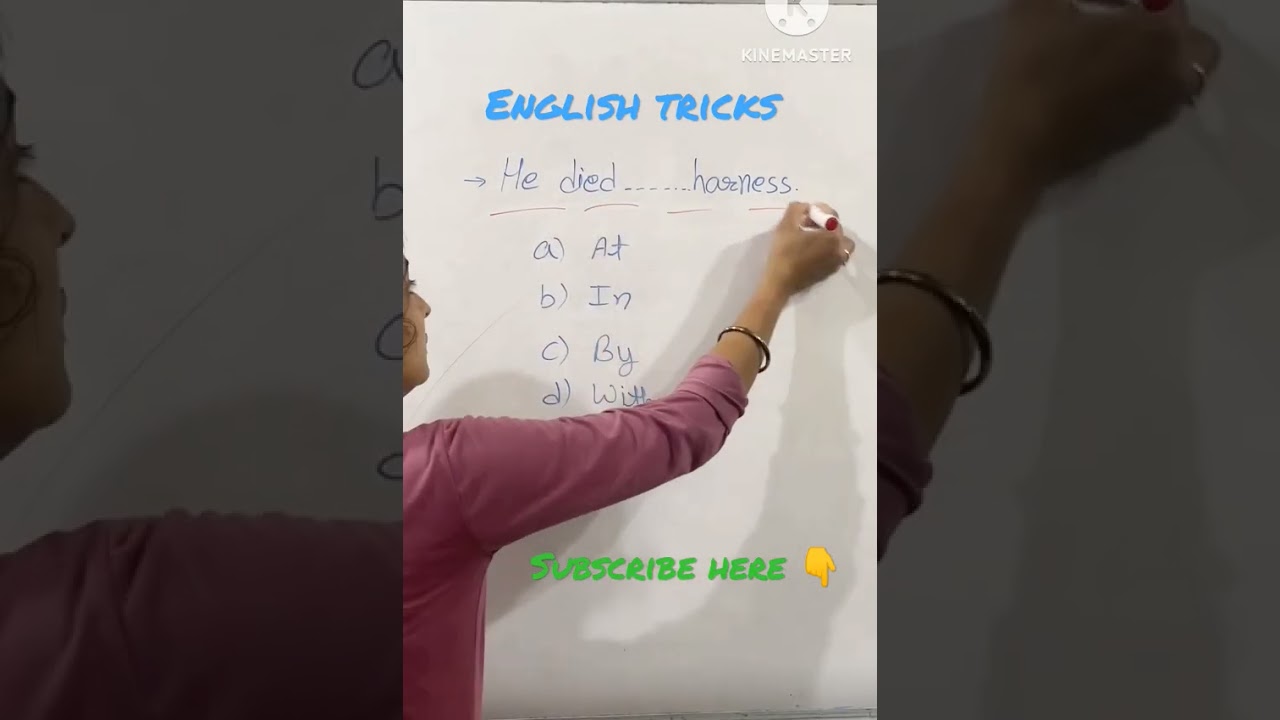 KINEMASTER
ENGLISH TRICKS
→ He died ...... harness.
a) At
b) In
c) By
d) With
SUBSCRIBE HERE 👇